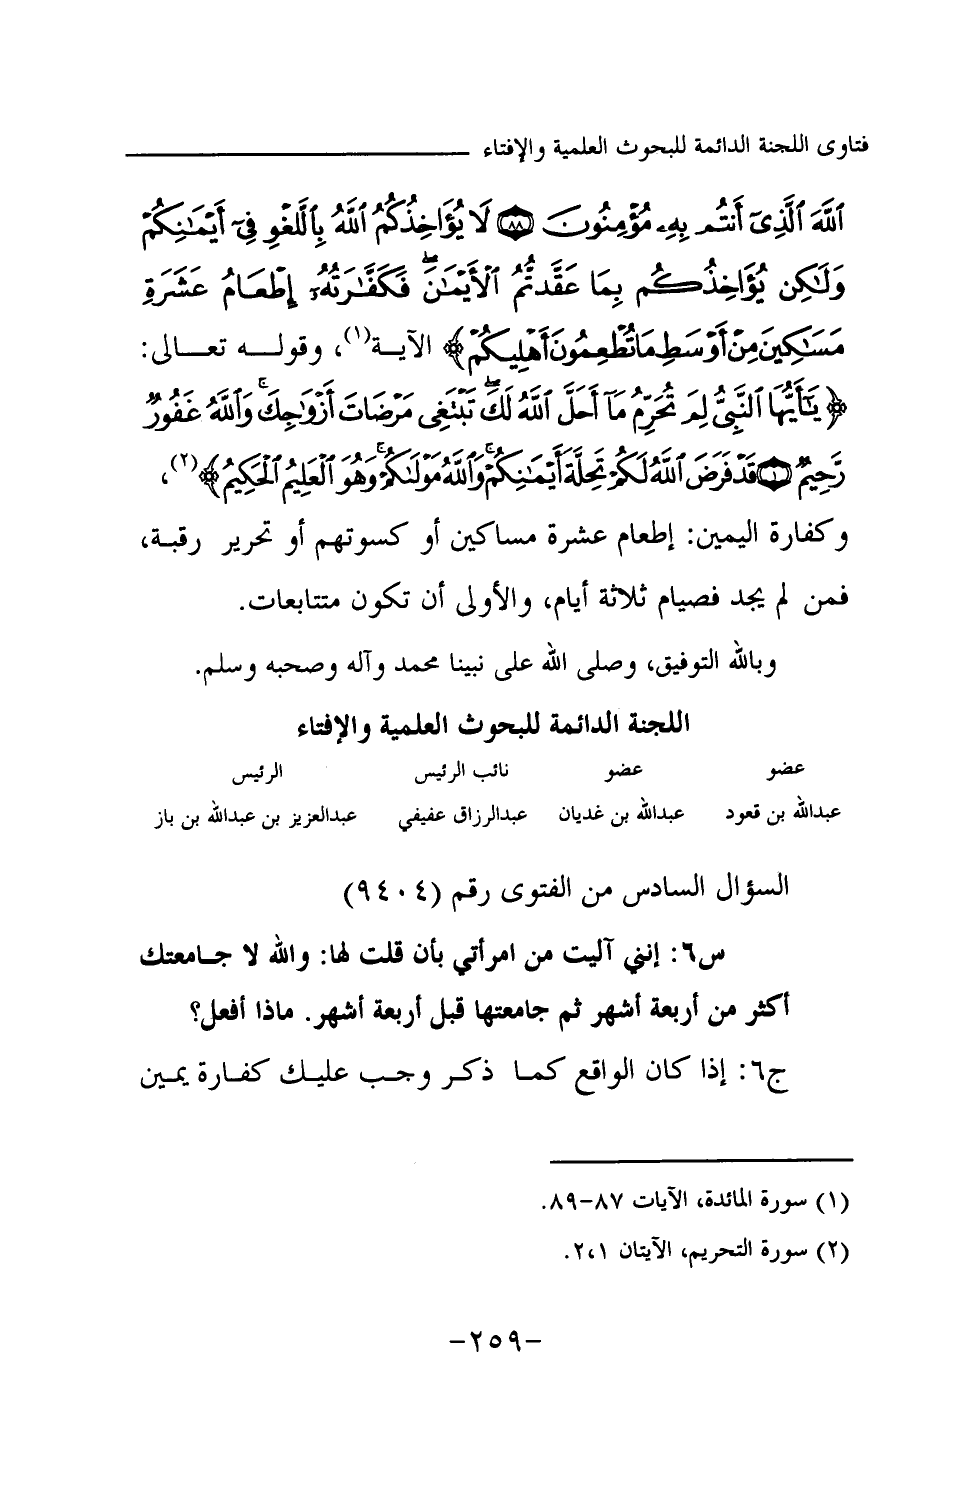 فتاوى اللجنة الدائمة للبحوث العلمية والإفتاء
ٱللَّهَ ٱلَّذِىٓ أَنتُم بِهِۦ مُؤْمِنُونَ ۝٨٨ لَا يُؤَاخِذُكُمُ ٱللَّهُ بِٱللَّغْوِ فِىٓ أَيْمَٰنِكُمْ
وَلَٰكِن يُؤَاخِذُكُم بِمَا عَقَّدتُّمُ ٱلْأَيْمَٰنَ ۖ فَكَفَّٰرَتُهُۥٓ إِطْعَامُ عَشَرَةِ
مَسَٰكِينَ مِنْ أَوْسَطِ مَا تُطْعِمُونَ أَهْلِيكُمْ﴾ الآية(١)، وقوله تعالى:
﴿يَٰٓأَيُّهَا ٱلنَّبِىُّ لِمَ تُحَرِّمُ مَآ أَحَلَّ ٱللَّهُ لَكَ ۖ تَبْتَغِى مَرْضَاتَ أَزْوَٰجِكَ ۚ وَٱللَّهُ غَفُورٌ
رَّحِيمٌ ۝١ قَدْ فَرَضَ ٱللَّهُ لَكُمْ تَحِلَّةَ أَيْمَٰنِكُمْ ۚ وَٱللَّهُ مَوْلَىٰكُمْ ۖ وَهُوَ ٱلْعَلِيمُ ٱلْحَكِيمُ﴾(٢)،
وكفارة اليمين: إطعام عشرة مساكين أو كسوتهم أو تحرير رقبة،
فمن لم يجد فصيام ثلاثة أيام، والأولى أن تكون متتابعات.
وبالله التوفيق، وصلى الله على نبينا محمد وآله وصحبه وسلم.
اللجنة الدائمة للبحوث العلمية والإفتاء
عضو عضو نائب الرئيس الرئيس
عبدالله بن قعود عبدالله بن غديان عبدالرزاق عفيفي عبدالعزيز بن عبدالله بن باز
السؤال السادس من الفتوى رقم (٩٤٠٤)
س٦: إنني آليت من امرأتي بأن قلت لها: والله لا جامعتك
أكثر من أربعة أشهر ثم جامعتها قبل أربعة أشهر. ماذا أفعل؟
ج٦: إذا كان الواقع كما ذكر وجب عليك كفارة يمين
(١) سورة المائدة، الآيات ٨٧-٨٩.
(٢) سورة التحريم، الآيتان ٢،١.
-٢٥٩-